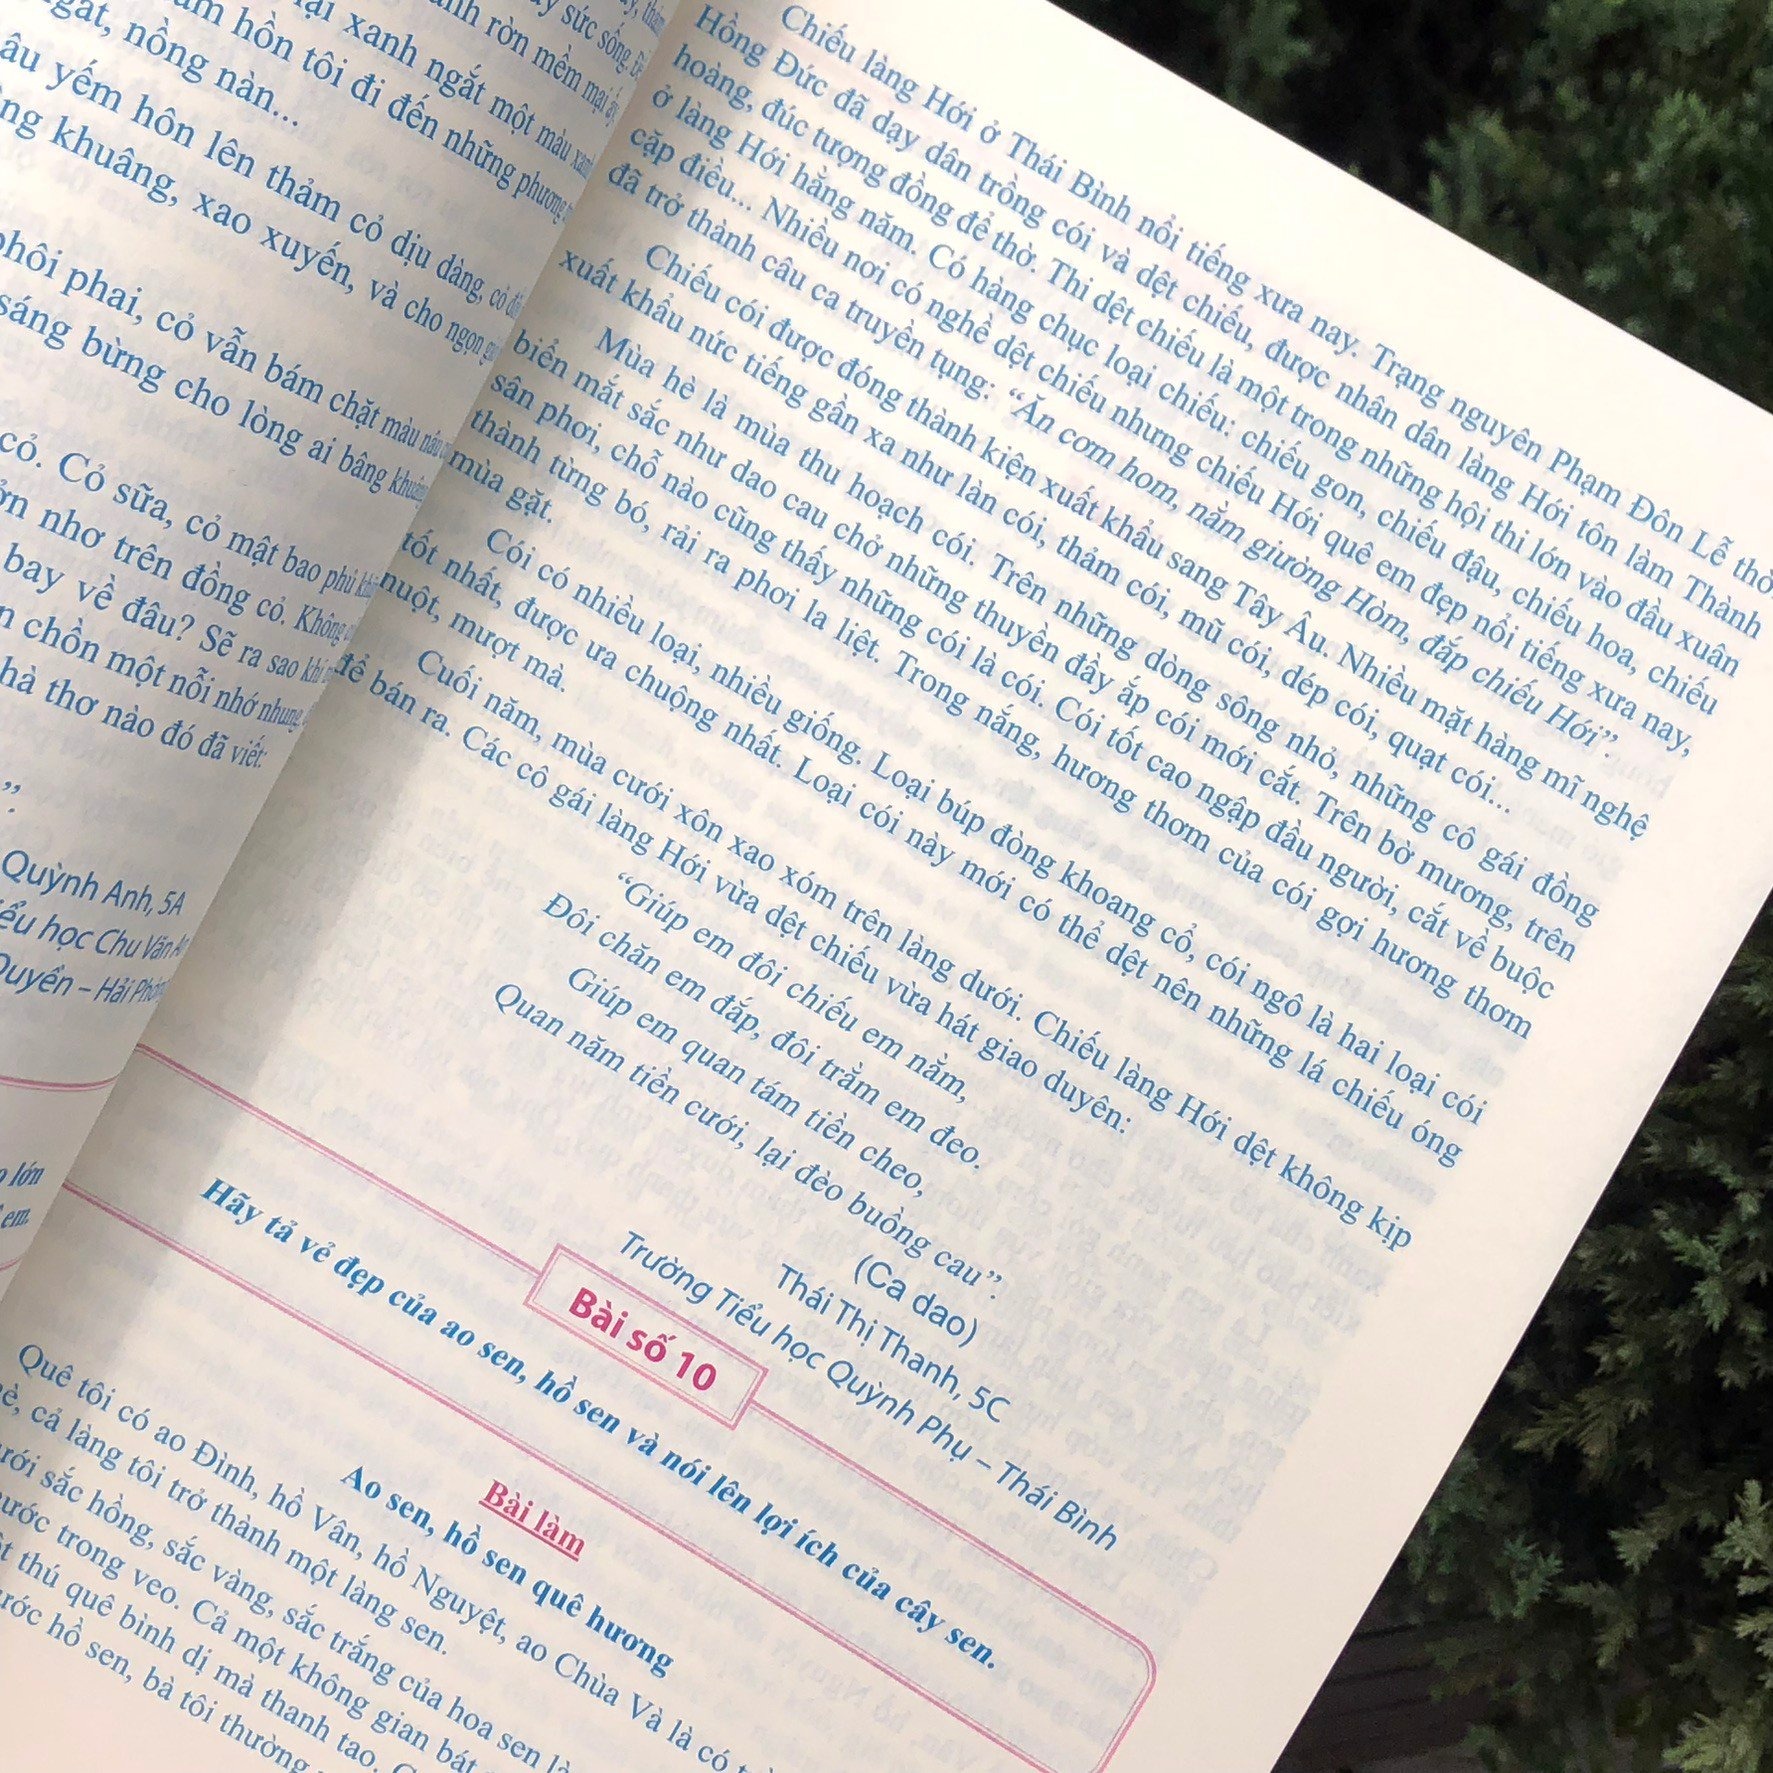 ại xanh ngắt một màu xanh
ngát, nồng nàn...
hồn tôi đi đến những phương
âu yếm hôn lên thảm cỏ dịu dàng, cỏ
khuâng, xao xuyến, và cho ngọn
phôi phai, cỏ vẫn bám chặt màu nâu
sáng bừng cho lòng ai bâng khuâng
cỏ. Cỏ sữa, cỏ mật bao phủ
nhơ trên đồng cỏ. Không
bay về đâu? Sẽ ra sao khi
chồn một nỗi nhớ nhung
hà thơ nào đó đã viết:
”.
Quỳnh Anh, 5A
ểu học Chu Văn An
Duyền – Hải Phòng
lớn
em.
Chiếu làng Hới ở Thái Bình nổi tiếng xưa nay. Trạng nguyên Phạm Đôn Lễ thờ
Hồng Đức đã dạy dân trồng cói và dệt chiếu, được nhân dân làng Hới tôn làm Thành
hoàng, đúc tượng đồng để thờ. Thi dệt chiếu là một trong những hội thi lớn vào đầu xuân
ở làng Hới hằng năm. Có hàng chục loại chiếu: chiếu gon, chiếu đậu, chiếu hoa, chiếu
cặp điều... Nhiều nơi có nghề dệt chiếu nhưng chiếu Hới quê em đẹp nổi tiếng xưa nay,
đã trở thành câu ca truyền tụng: “Ăn cơm hom, nằm giường Hòm, đắp chiếu Hới”.
Chiếu cói được đóng thành kiện xuất khẩu sang Tây Âu. Nhiều mặt hàng mĩ nghệ
xuất khẩu nức tiếng gần xa như làn cói, thảm cói, mũ cói, dép cói, quạt cói...
Mùa hè là mùa thu hoạch cói. Trên những dòng sông nhỏ, những cô gái đồng
biển mắt sắc như dao cau chở những thuyền đầy ắp cói mới cắt. Trên bờ mương, trên
sân phơi, chỗ nào cũng thấy những cói là cói. Cói tốt cao ngập đầu người, cắt về buộc
thành từng bó, rải ra phơi la liệt. Trong nắng, hương thơm của cói gợi hương thơm
mùa gặt.
Cói có nhiều loại, nhiều giống. Loại búp đòng khoang cổ, cói ngô là hai loại cói
tốt nhất, được ưa chuộng nhất. Loại cói này mới có thể dệt nên những lá chiếu óng
nuột, mượt mà.
Cuối năm, mùa cưới xôn xao xóm trên làng dưới. Chiếu làng Hới dệt không kịp
để bán ra. Các cô gái làng Hới vừa dệt chiếu vừa hát giao duyên:
“Giúp em đôi chiếu em nằm,
Đôi chăn em đắp, đôi trằm em đeo.
Giúp em quan tám tiền cheo,
Quan năm tiền cưới, lại đèo buồng cau”.
(Ca dao)
Thái Thị Thanh, 5C
Trường Tiểu học Quỳnh Phụ – Thái Bình
Bài số 10
Hãy tả vẻ đẹp của ao sen, hồ sen và nói lên lợi ích của cây sen.
Bài làm
Ao sen, hồ sen quê hương
Quê tôi có ao Đình, hồ Vân, hồ Nguyệt, ao Chùa Và là có
cả làng tôi trở thành một làng sen.
sắc hồng, sắc vàng, sắc trắng của hoa sen
nước trong veo. Cả một không gian bát
thú quê bình dị mà thanh tao.
hồ sen, bà tôi thường